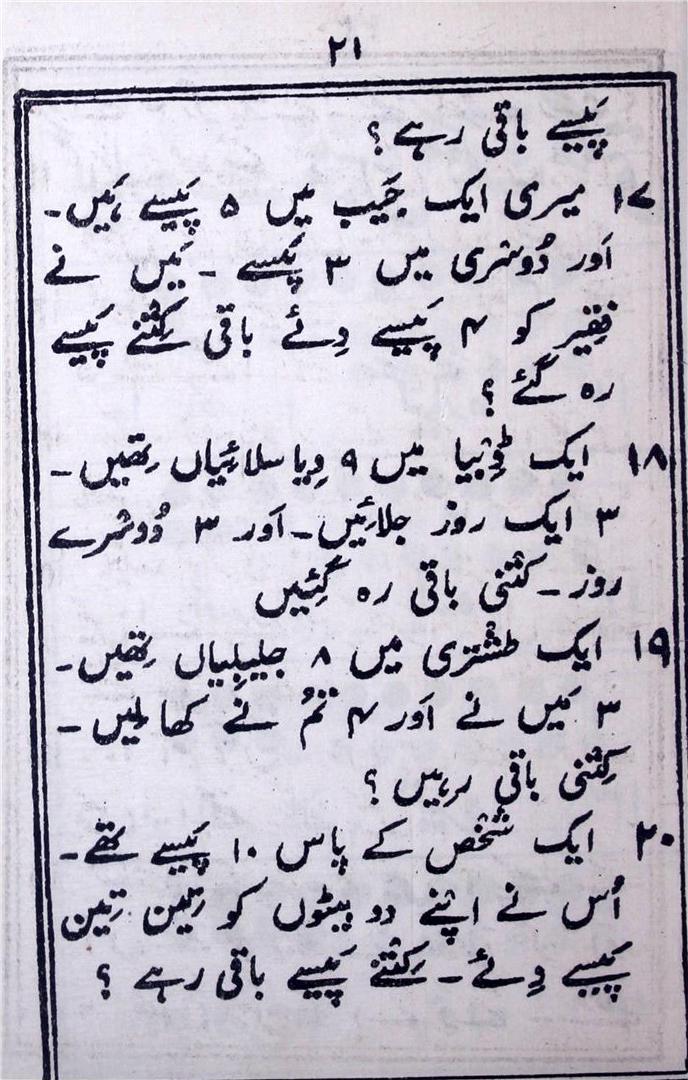 ۲۱
پَیسے باقی رہے؟
۱۷ میری ایک جَیب میں ۵ پَیسے ہَیں۔
اَور دُوسْری میں ۳ پَیسے ۔ مَیں نے
فقِیر کو ۴ پَیسے دِئے باقی کِتْنے پَیسے
رہ گئے ؟
۱۸ ایک ڈِبْیا میں ۹ دِیاسلائِیاں تِھیں۔
۳ ایک روز جلائِیں۔ اَور ۳ دُوسْرے
روز۔ کِتْنی باقی رہ گِئیں
۱۹ ایک طشْتری میں ۸ جلیبِیاں تِھیں۔
۳ مَیں نے اَور ۴ تُمْ نے کھا لِیں۔
کِتْنی باقی رہِیں؟
۲۰ ایک شخْص کے پاس ۱۰ پَیسے تھے۔
اُس نے اپْنے دو بیٹوں کو تِین تِین
پَیسے دِئے۔ کِتْنے پَیسے باقی رہے ؟